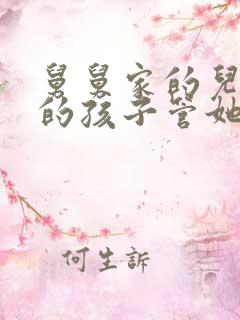 舅舅家的兒
的孩子管她
何生訴